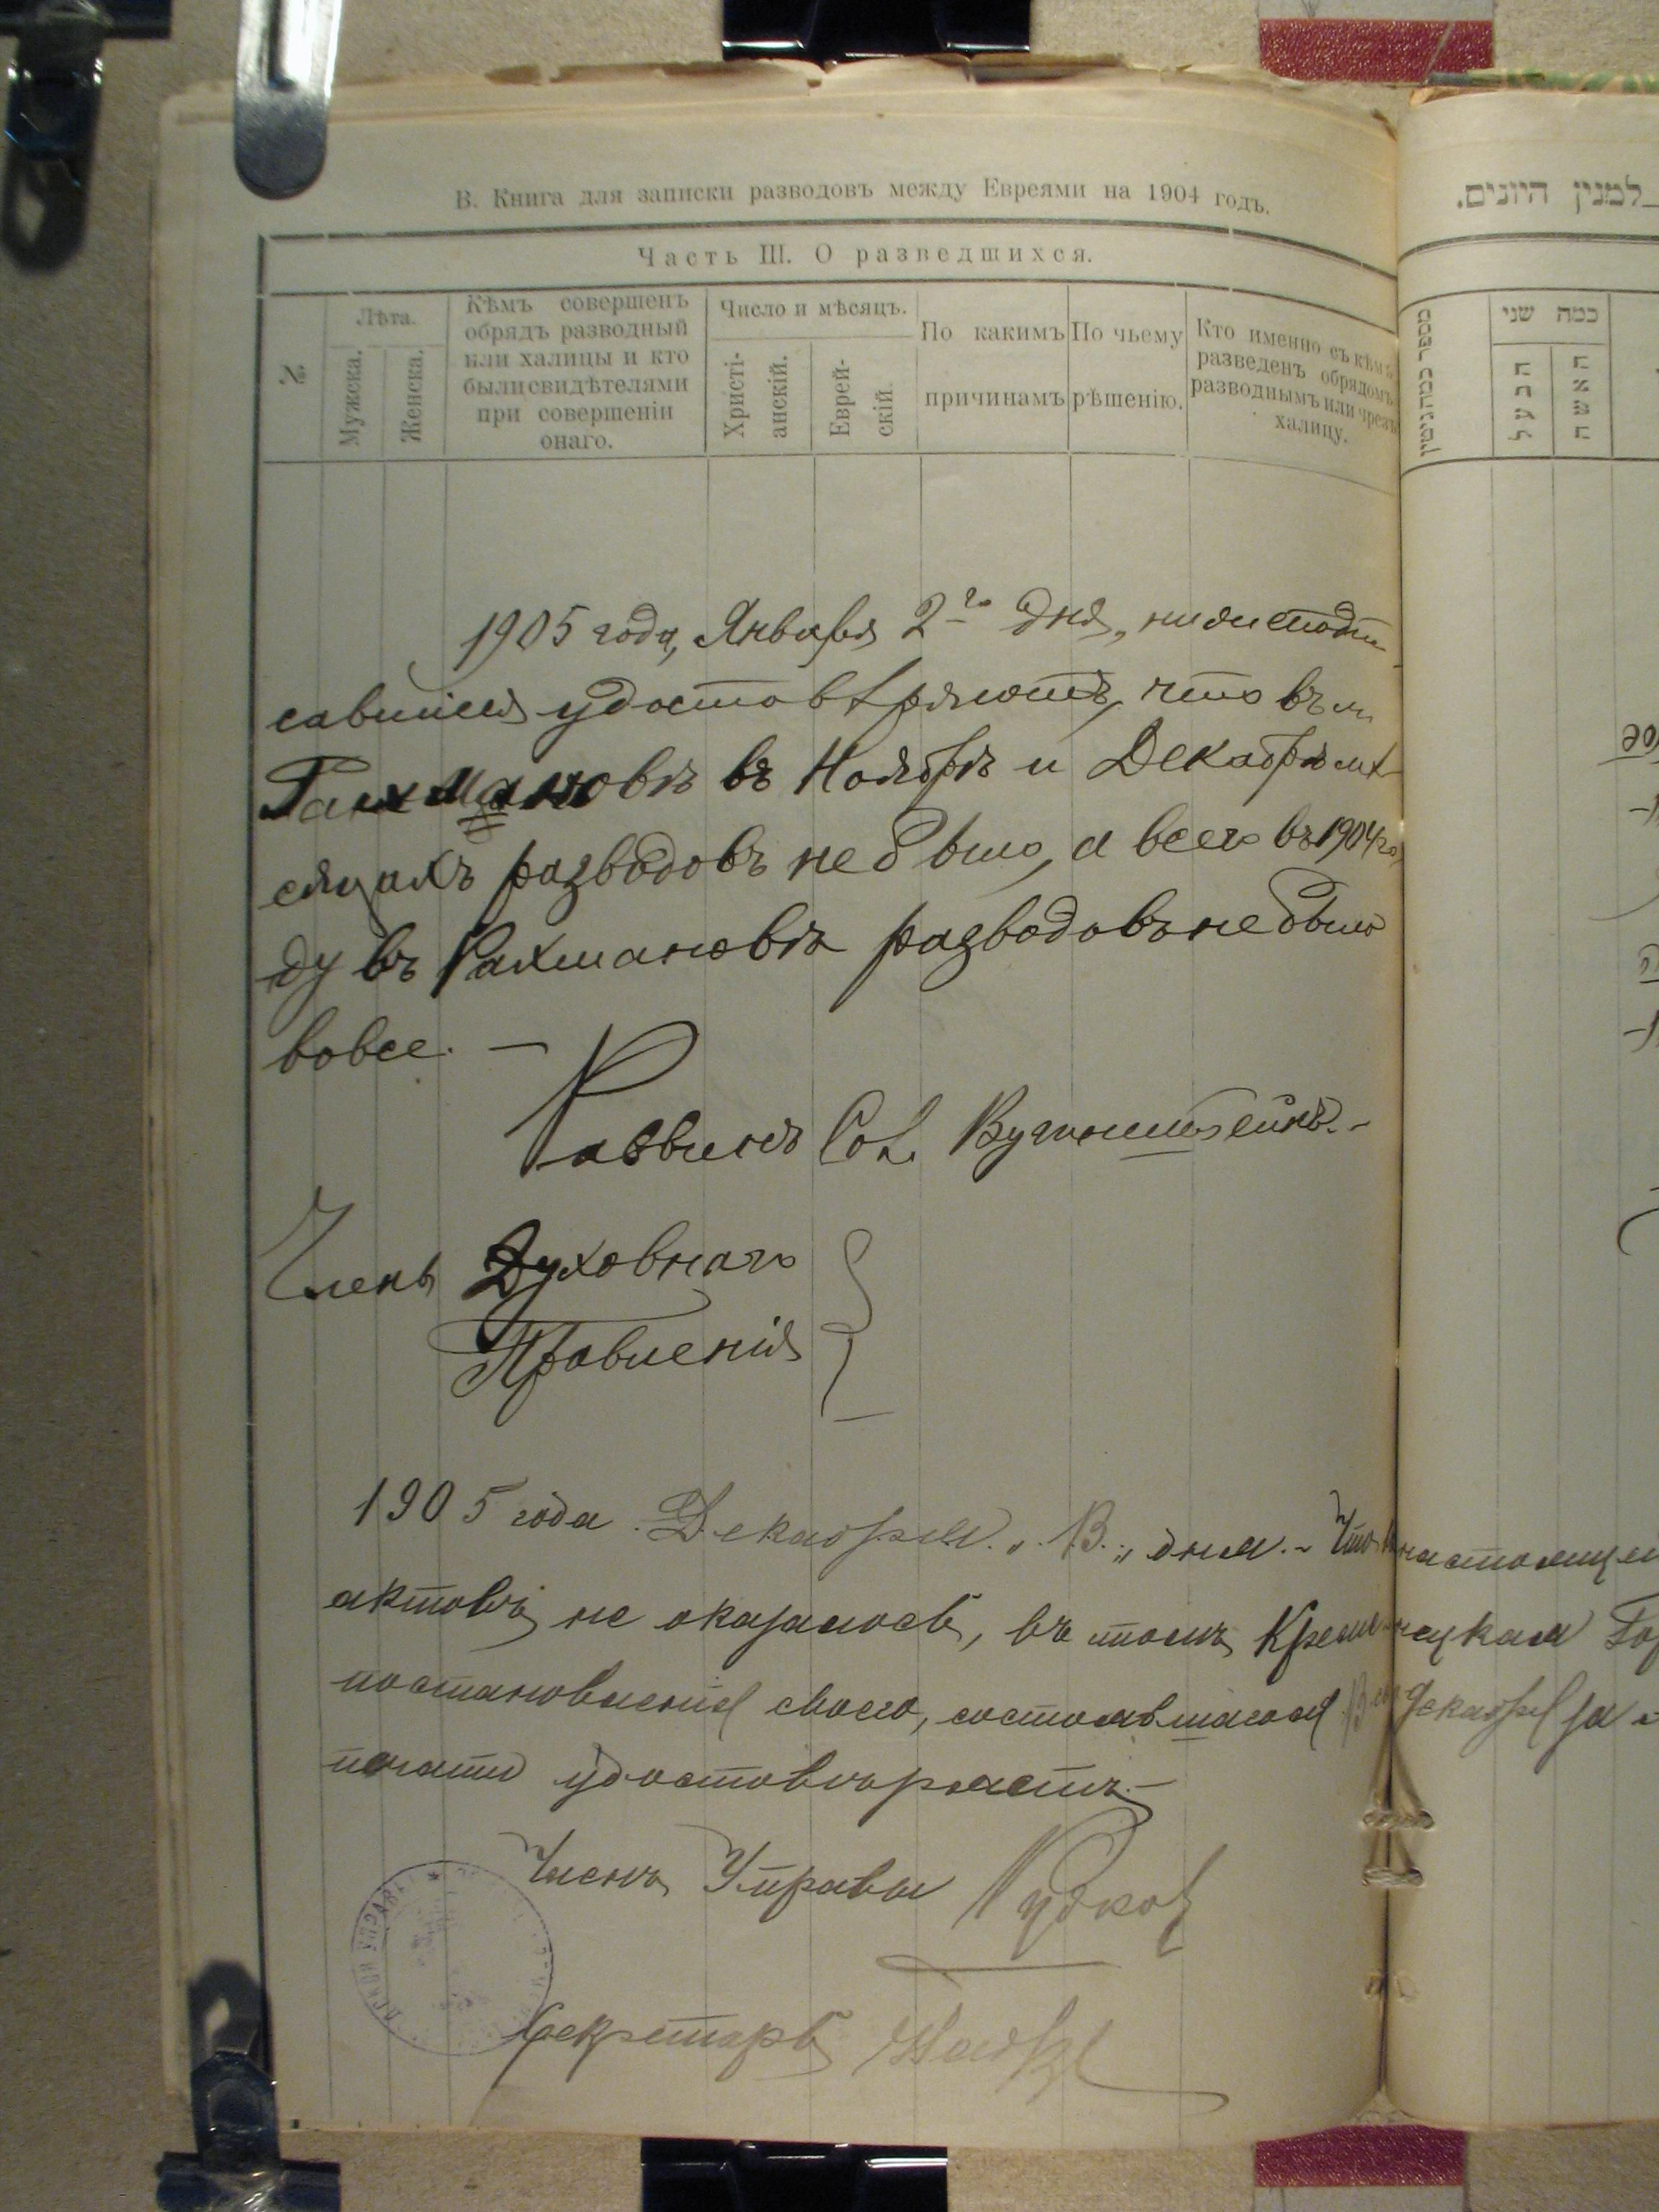 В. Книга для записки разводовъ между Евреями на 1904 годъ.
Часть III. О разведшихся.
№
Лѣта.
Мужска.
Женска.
Кѣмъ совершенъ
обрядъ разводный
или халицы и кто
были свидѣтелями
при совершеніи
онаго.
Число и мѣсяцъ.
Христі-
анскій.
Еврей-
скій.
По какимъ
причинамъ
По чьему
рѣшенію.
Кто именно съ кѣмъ
разведенъ обрядомъ
разводнымъ или чрезъ
халицу.
1905 года, Января 2го дня, нижеподпи-
савшіеся удостовѣряютъ, что въ м.
Рахмановѣ въ Ноябрѣ и Декабрѣ мѣ-
сяцахъ разводовъ не было, а всего въ 1904 го
ду въ Рахмановѣ разводовъ не было
вовсе. —
Раввинъ Сол.
Члены Духовнаго
Правленія
1905 года Декабря „ 13 „ дня. - Что въ настоящем
актовъ не оказалось, въ томъ Кременецкая Гор
постановленія своего, состоявшагося 13го Декабря за
печати удостовѣряетъ. —
Членъ Управы
Секретарь
למנין היונים.
מספר הגרושין
כמה שני
הבעל
האשה